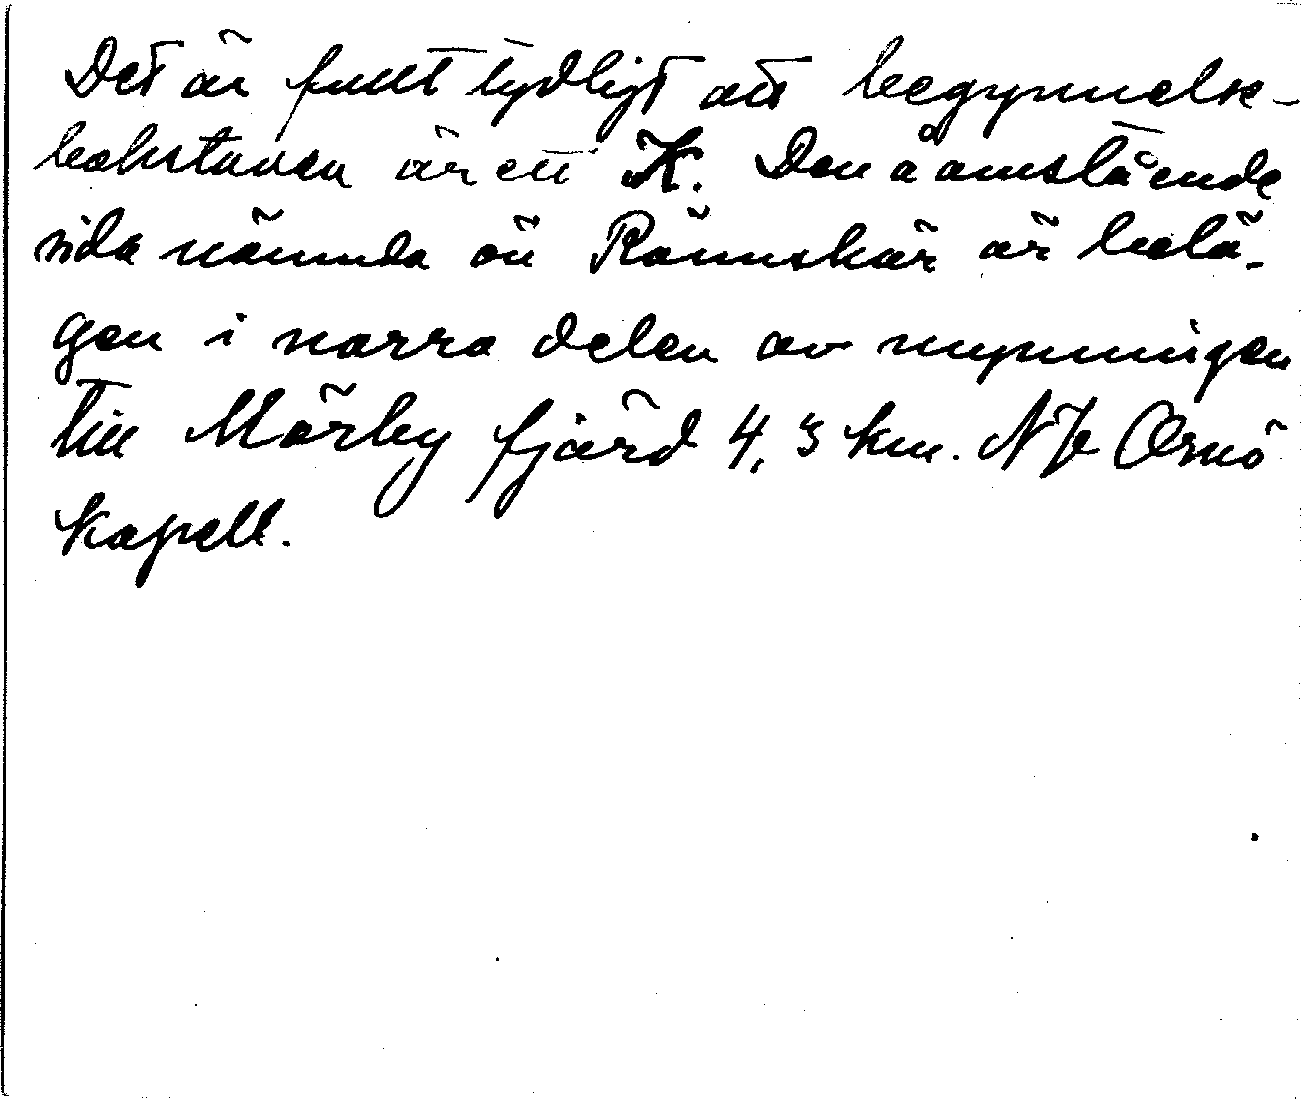 Det är fullt tydligt att begynnelse-
bokstaven är ett K. Den å omstående
sida nämnda ön Rönnskär är belä-
gen i norra delen av mynningen
till Mörby fjärd 4,3 km. NV Ornö
kapell.